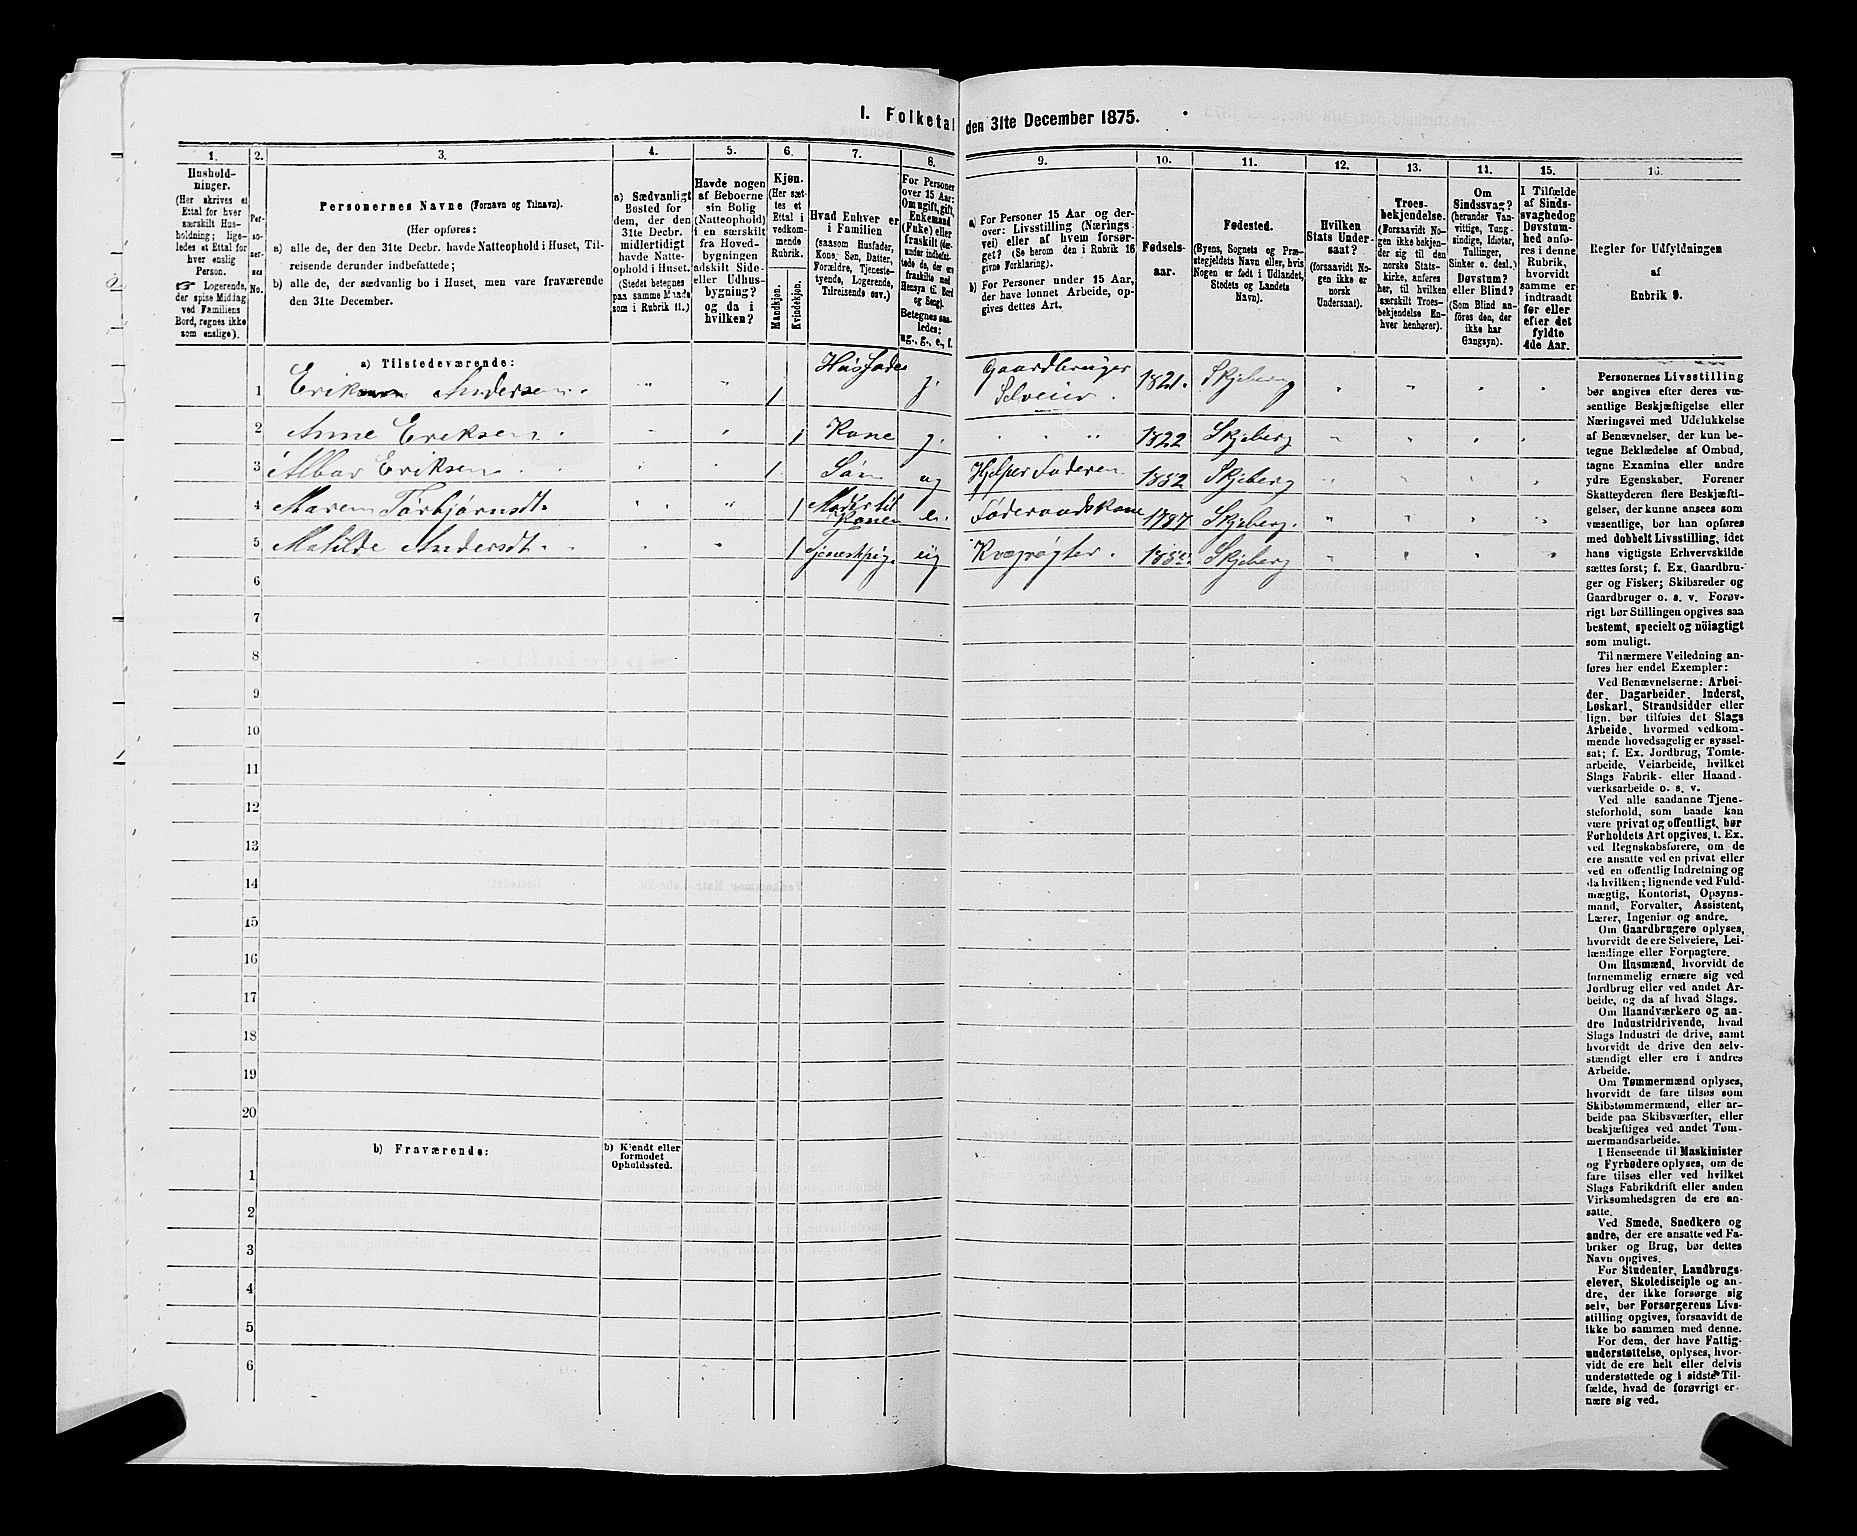 I. Folketal den 31te December 1875.
1. 2. 3. 4. 5. 6. 7. 8. 9. 10. 11. 12. 13. 14. 15. 16.
Hushold-
ninger.
(Her skrives et
Ettal for hver
særskilt Hus-
holdning; lige-
ledes et Ettal for
hver enslig
Person.
☞ Logerende,
der spise Middag
ved Familiens
Bord, regnes ikke
som enslige).
Per-
so-
ner-
nes
No.
Personernes Navne (Fornavn og Tilnavn).
(Her opføres:
a) alle de, der den 31te Decbr. havde Natteophold i Huset, Til-
reisende derunder indbefattede;
b) alle de, der sædvanlig bo i Huset, men vare fraværende
den 31te December.
a) Sædvanligt
Bosted for
dem, der den
31te Decbr.
midlertidigt
havde Natte-
ophold i Huset.
(Stedet betegnes
paa samme Maade
som i Rubrik 11.)
Havde nogen
af Beboerne
sin Bolig
(Natteophold)
i en særskilt
fra Hoved-
bygningen
adskilt Side-
eller Udhus-
bygning?
og da i
hvilken?
Kjøn.
(Her sæt-
tes et
Ettal i
vedkom-
mende
Rubrik.
Mandkjøn.
Kvindekjøn.
Hvad Enhver er
i Familien
(saasom Husfader,
Kone, Søn, Datter,
Forældre, Tjeneste-
tyende, Logerende,
Tilreisende osv.)
For Personer
over 15 Aar:
Om ugift, gift,
Enkemand
(Enke) eller
fraskilt (der-
under indbefat-
tede de, der ere
fraskilte med
Hensyn til Bord
og Seng).
Betegnes saa-
ledes:
ug., g., e., f.
a) For Personer 15 Aar og der-
over: Livsstilling (Nærings-
vei) eller af hvem forsør-
get? (Se herom den i Rubrik 16
givne Forklaring).
b) For Personer under 15 Aar,
der have lønnet Arbeide, op-
gives dettes Art.
Fødsels-
aar.
Fødested.
(Byens, Sognets og Præ-
stegjeldets Navn eller, hvis
Nogen er født i Udlandet,
Stedets og Landets
Navn).
Hvilken
Stats Under-
saat?
(forsaavidt No-
gen ikke er
norsk
Undersaat).
Troes-
bekjendelse.
(Forsaavidt No-
gen ikke bekjen-
der sig til den
norske Stats-
kirke, anføres
her, til hvilken
særskilt Troes-
bekjendelse En-
hver henhører).
Om
Sindssvag?
(herunder Van-
vittige, Tung-
sindige, Idioter,
Tullinger,
Sinker o. desl.)
Døvstum?
eller Blind?
(Som Blind an-
føres den, der
ikke har
Gangsyn).
I Tilfælde
af Sinds-
svaghedog
Døvstum-
hed anfø-
res i denne
Rubrik,
hvorvidt
samme er
indtraadt
før eller
efter det
fyldte
4de Aar.
Regler for Udfyldningen
af
Rubrik 9.
a) Tilstedeværende:
1 Erik Andersen 1 Husfader g. Gaardbruger Selveier. 1821. Skjeberg
2 Anne Eriksen 1 Kone g. 1822 Skjeberg
3 Eriksen 1 Søn ug Hjelper Faderen 1852 Skjeberg
4 Maren Torbjørnsdt. 1 Moder til Konen e. Føderaadskone 1787 Skjeberg.
5 Matilde Andersdt. 1 Tjenestpig. ug Kvægrøgter. Skjeberg
6
7
8
9
10
11
12
13
14
15
16
17
18
19
20
b) Fraværende:
b) Kjendt eller
formodet
Opholdssted.
1
2
3
4
5
6
Personernes Livsstilling
bør angives efter deres væ-
sentlige Beskjæftigelse eller
Næringsvei med Udelukkelse
af Benævnelser, der kun be-
tegne Beklædelse af Ombud,
tagne Examina eller andre
ydre Egenskaber. Forener
Skatteyderen flere Beskjæfti-
gelser, der kunne ansees som
væsentlige, bør han opføres
med dobbelt Livsstilling, idet
hans vigtigste Erhvervskilde
sættes først; f. Ex. Gaardbru-
ger og Fisker; Skibsreder og
Gaardbruger o. s. v. Forøv-
rigt bør Stillingen opgives saa
bestemt, specielt og nöiagtigt
som muligt.
Til nærmere Veiledning an-
føres her endel Exempler:
Ved Benævnelserne: Arbei-
der, Dagarbeider, Inderst,
Løskarl, Strandsidder eller
lign. bør tilføies det Slags
Arbeide, hvormed vedkom-
mende hovedsagelig er syssel-
sat; f. Ex. Jordbrug, Tomte-
arbeide, Veiarbeide, hvilket
Slags Fabrik- eller Haand-
værksarbeide o. s. v.
Ved alle saadanne Tjene-
steforhold, som baade kan
være privat og offentligt, bør
Forholdets Art opgives, f. Ex.
ved Regnskabsførere, om de
ere ansatte ved en privat eller
ved en offentlig Indretning og
da hvilken; lignende ved Fuld-
mægtig, Kontorist, Opsyns-
mand, Forvalter, Assistent,
Lærer, Ingeniør og andre.
Om Gaardbrugere oplyses,
hvorvidt de ere Selveiere, Lei-
lændinge eller Forpagtere.
Om Husmænd, hvorvidt de
fornemmelig ernære sig ved
Jordbrug eller ved andet Ar-
beide, og da af hvad Slags.
Om Haandværkere og an-
dre Industridrivende, hvad
Slags Industri de drive, samt
hvorvidt de drive den selv-
stændigt eller ere i andres
Arbeide.
Om Tømmermænd oplyses,
hvorvidt de fare tilsøs som
Skibstømmermænd, eller ar-
beide paa Skibsværfter, eller
beskjæftiges ved andet Tøm-
mermandsarbeide.
I Henseende til Maskinister
og Fyrbødere oplyses, om de
fare tilsøs eller ved hvilket
Slags Fabrikdrift eller anden
Virksomhedsgren de ere an-
satte.
Ved Smede, Snedkere og
andre, der ere ansatte ved Fa-
briker og Brug, bør dettes
Navn opgives.
For Studenter, Landbrugs-
elever, Skoledisciple og an-
dre, der ikke forsørge sig
selv, bør Forsørgerens Livs-
stilling opgives, forsaavidt de
ikke bo sammen med denne.
For dem, der have Fattig-
understøttelse, oplyses, hvor-
vidt de ere helt eller delvis
understøttede og i sidste Til-
fælde, hvad de forøvrigt er-
nære sig ved.